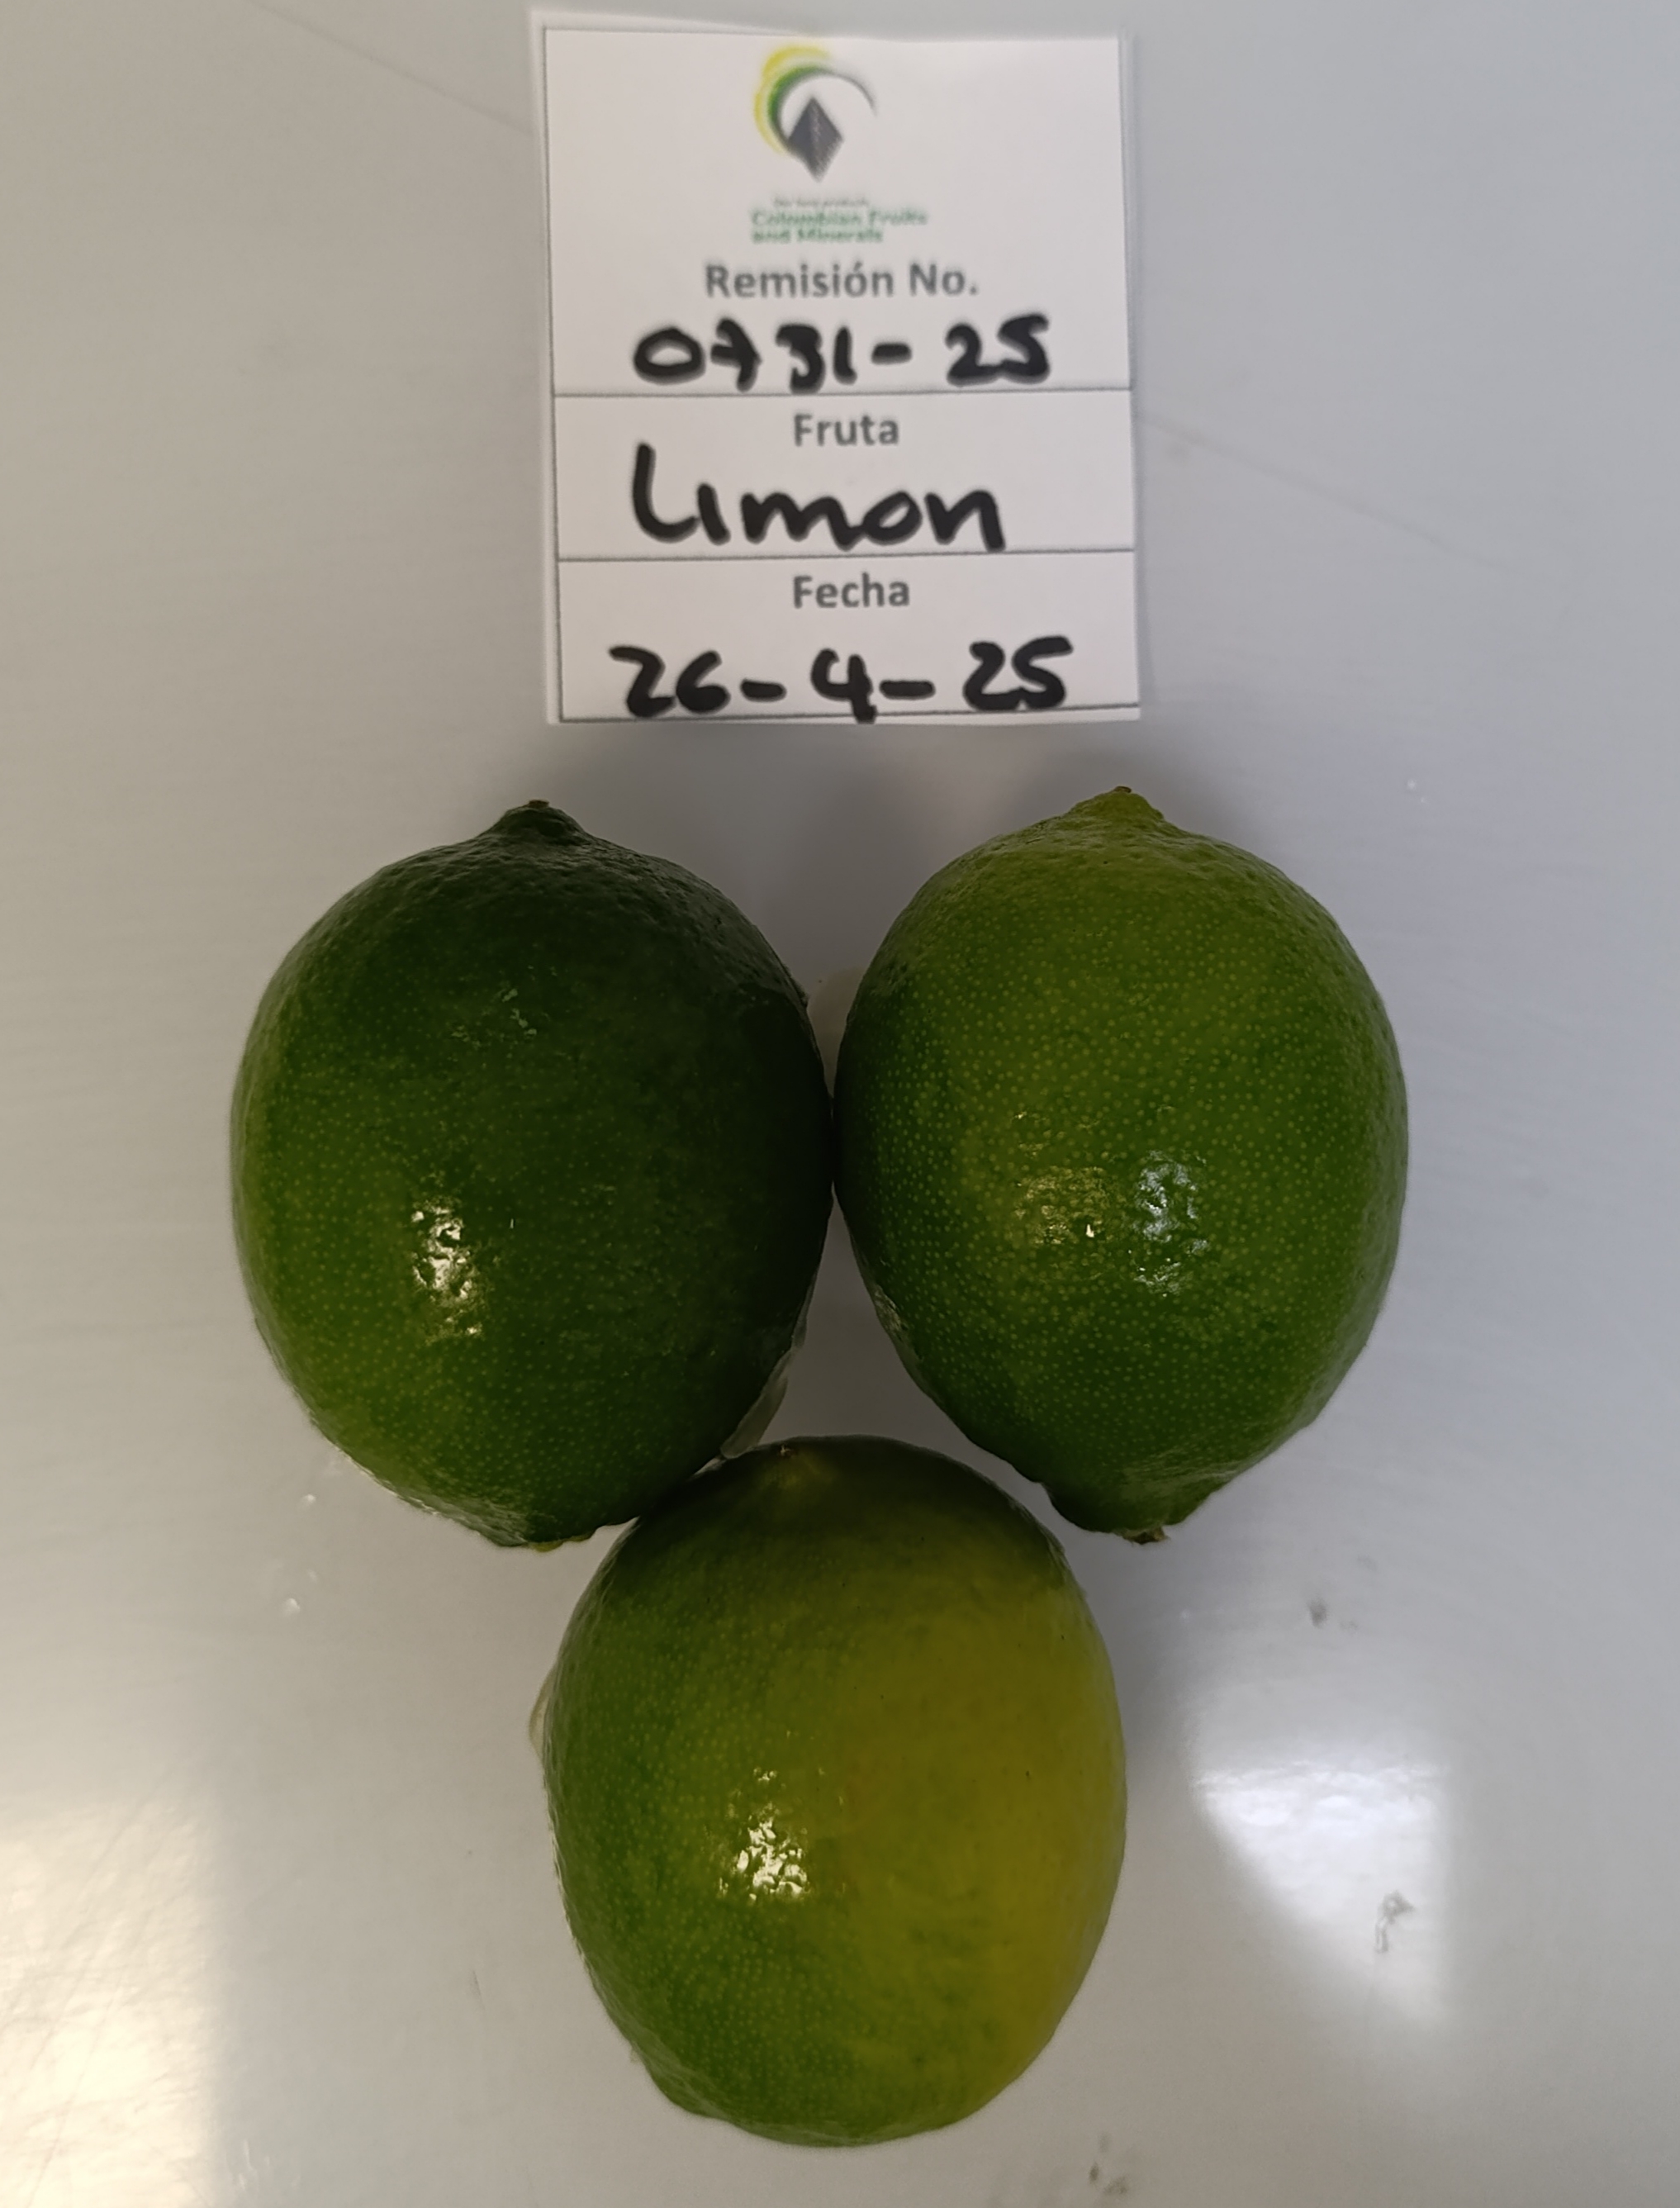 Colombian Fruits
and Minerals
Remisión No.
0731-25
Fruta
Limon
Fecha
26-4-25